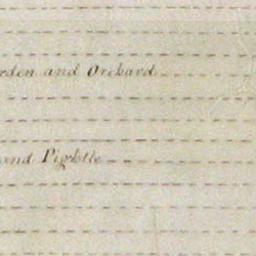 rden and Orchard
and Pightle